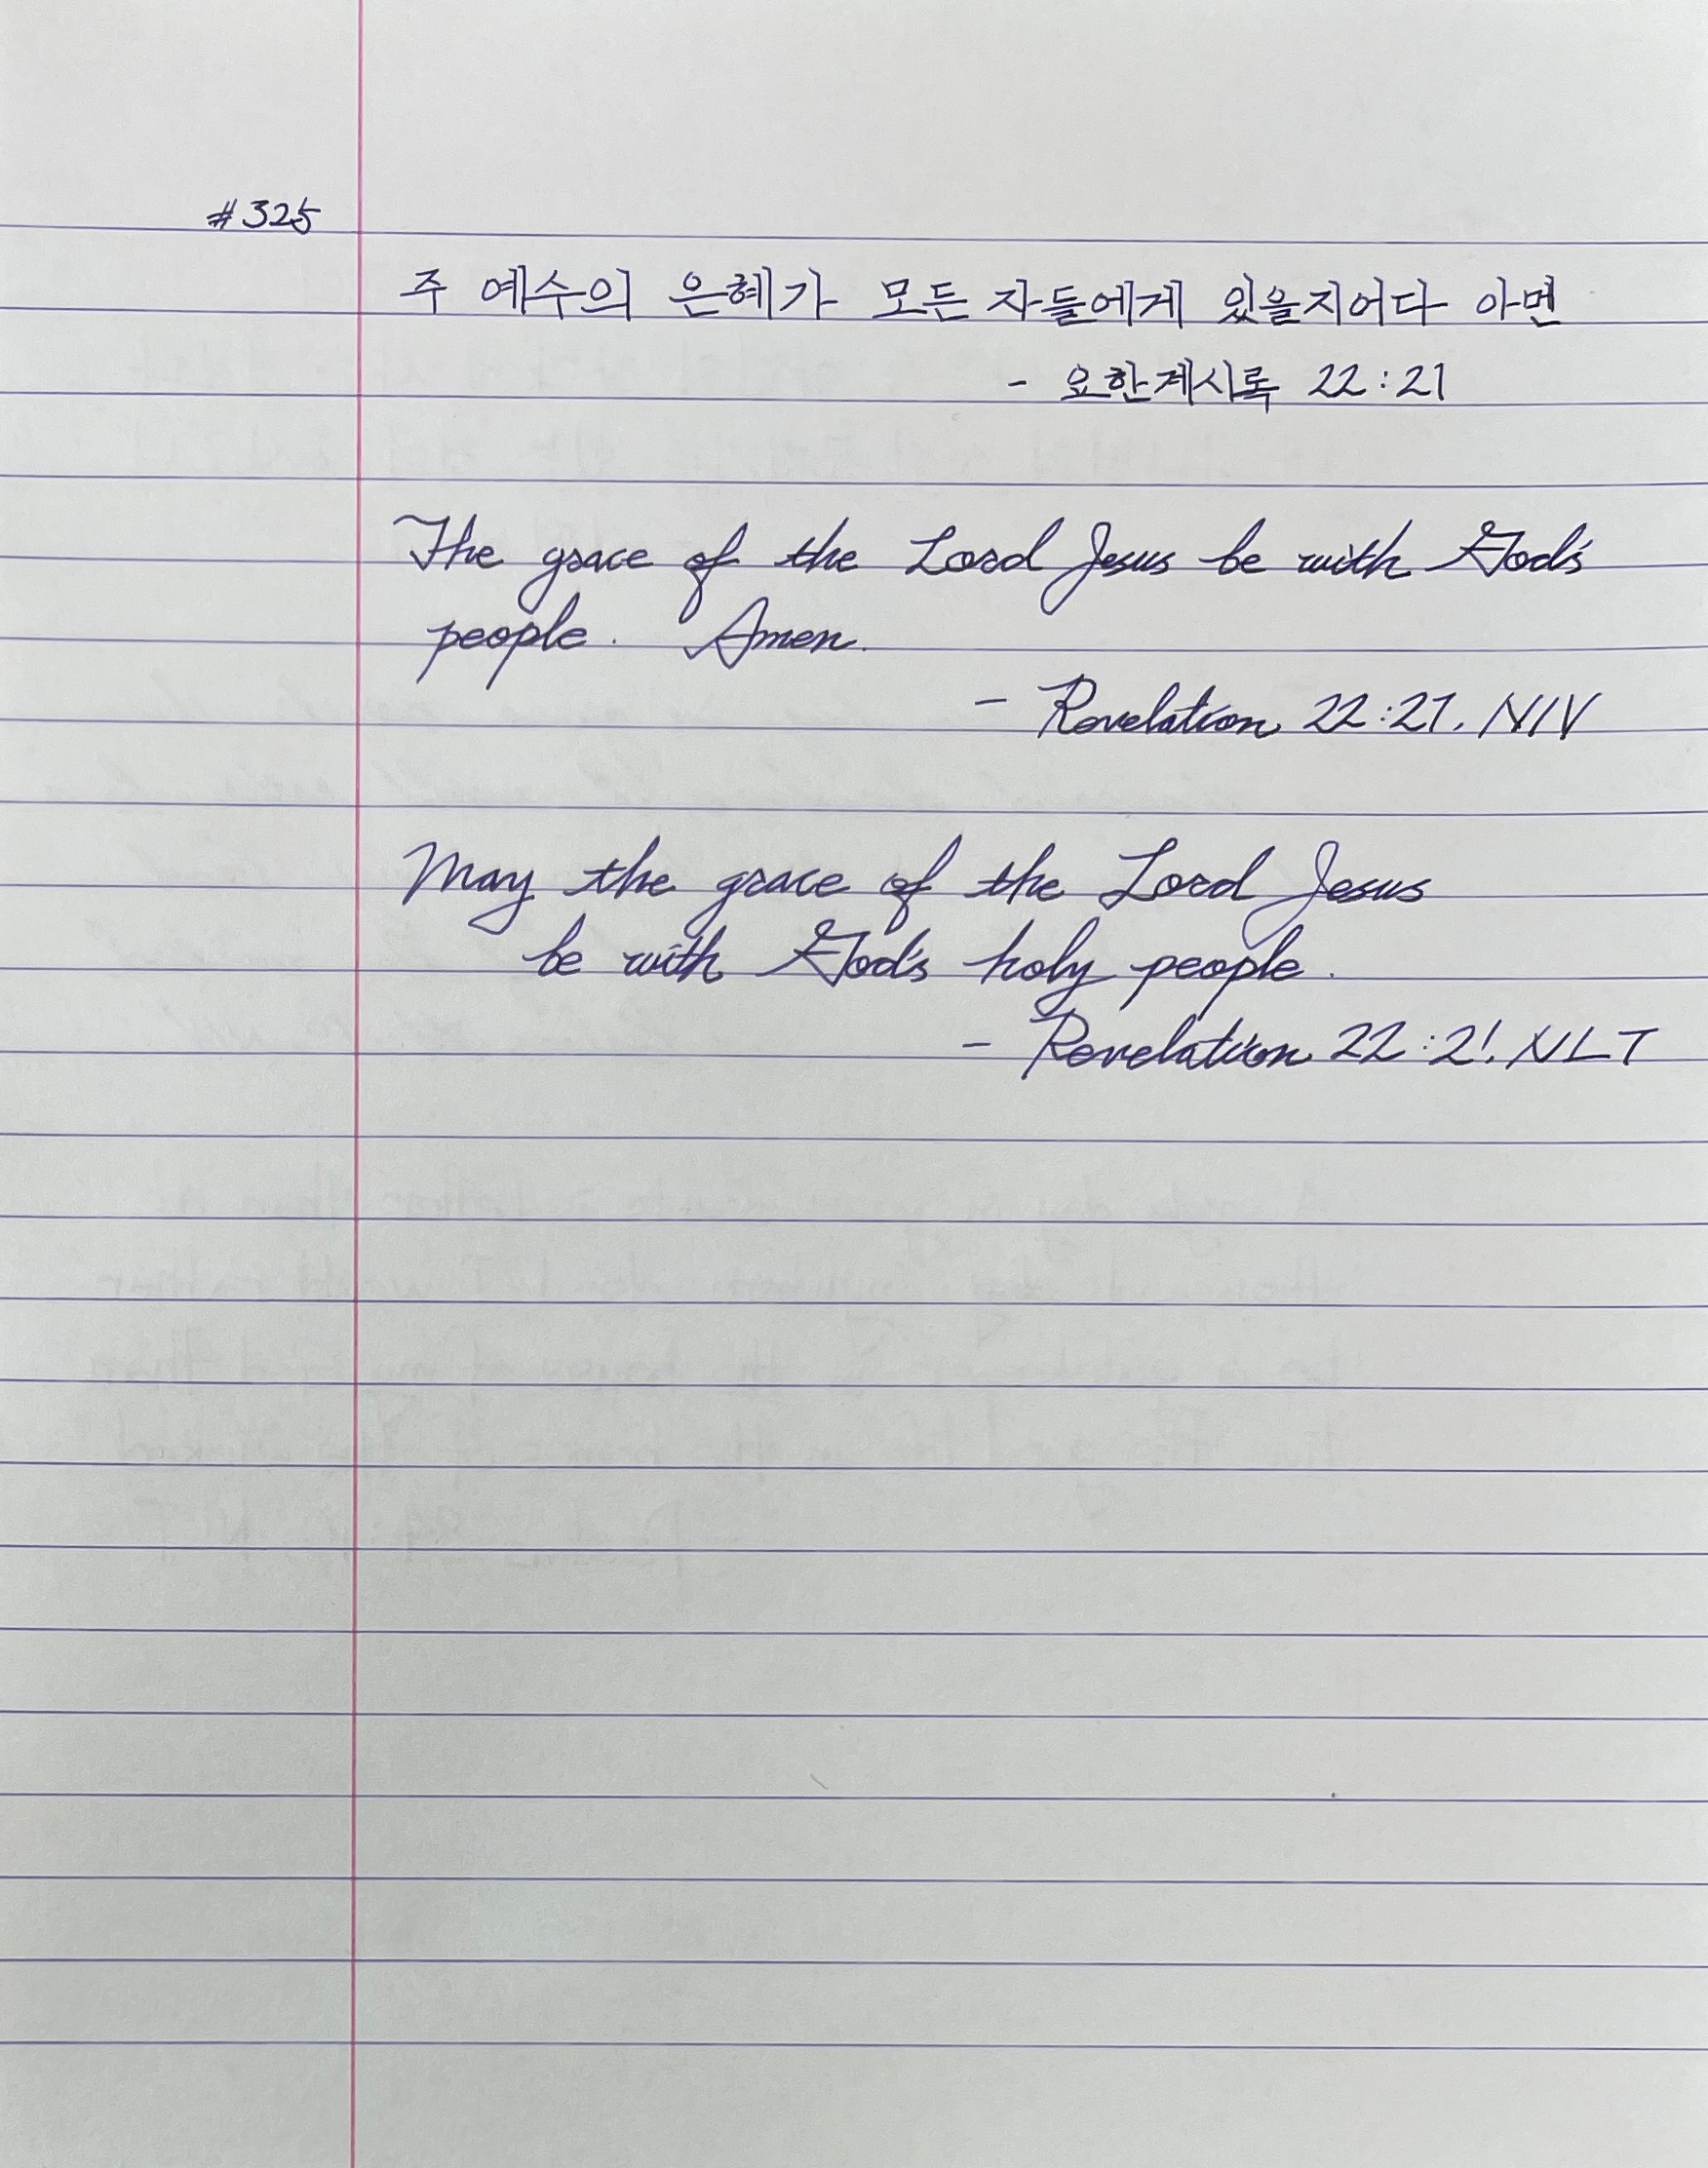 #325
주 예수의 은혜가 모든 자들에게 있을지어다 아멘
- 요한계시록 22:21
The grace of the Lord Jesus be with God's
people. Amen.
- Revelation 22:21. NIV
May the grace of the Lord Jesus
be with God's holy people.
- Revelation 22:21. NLT